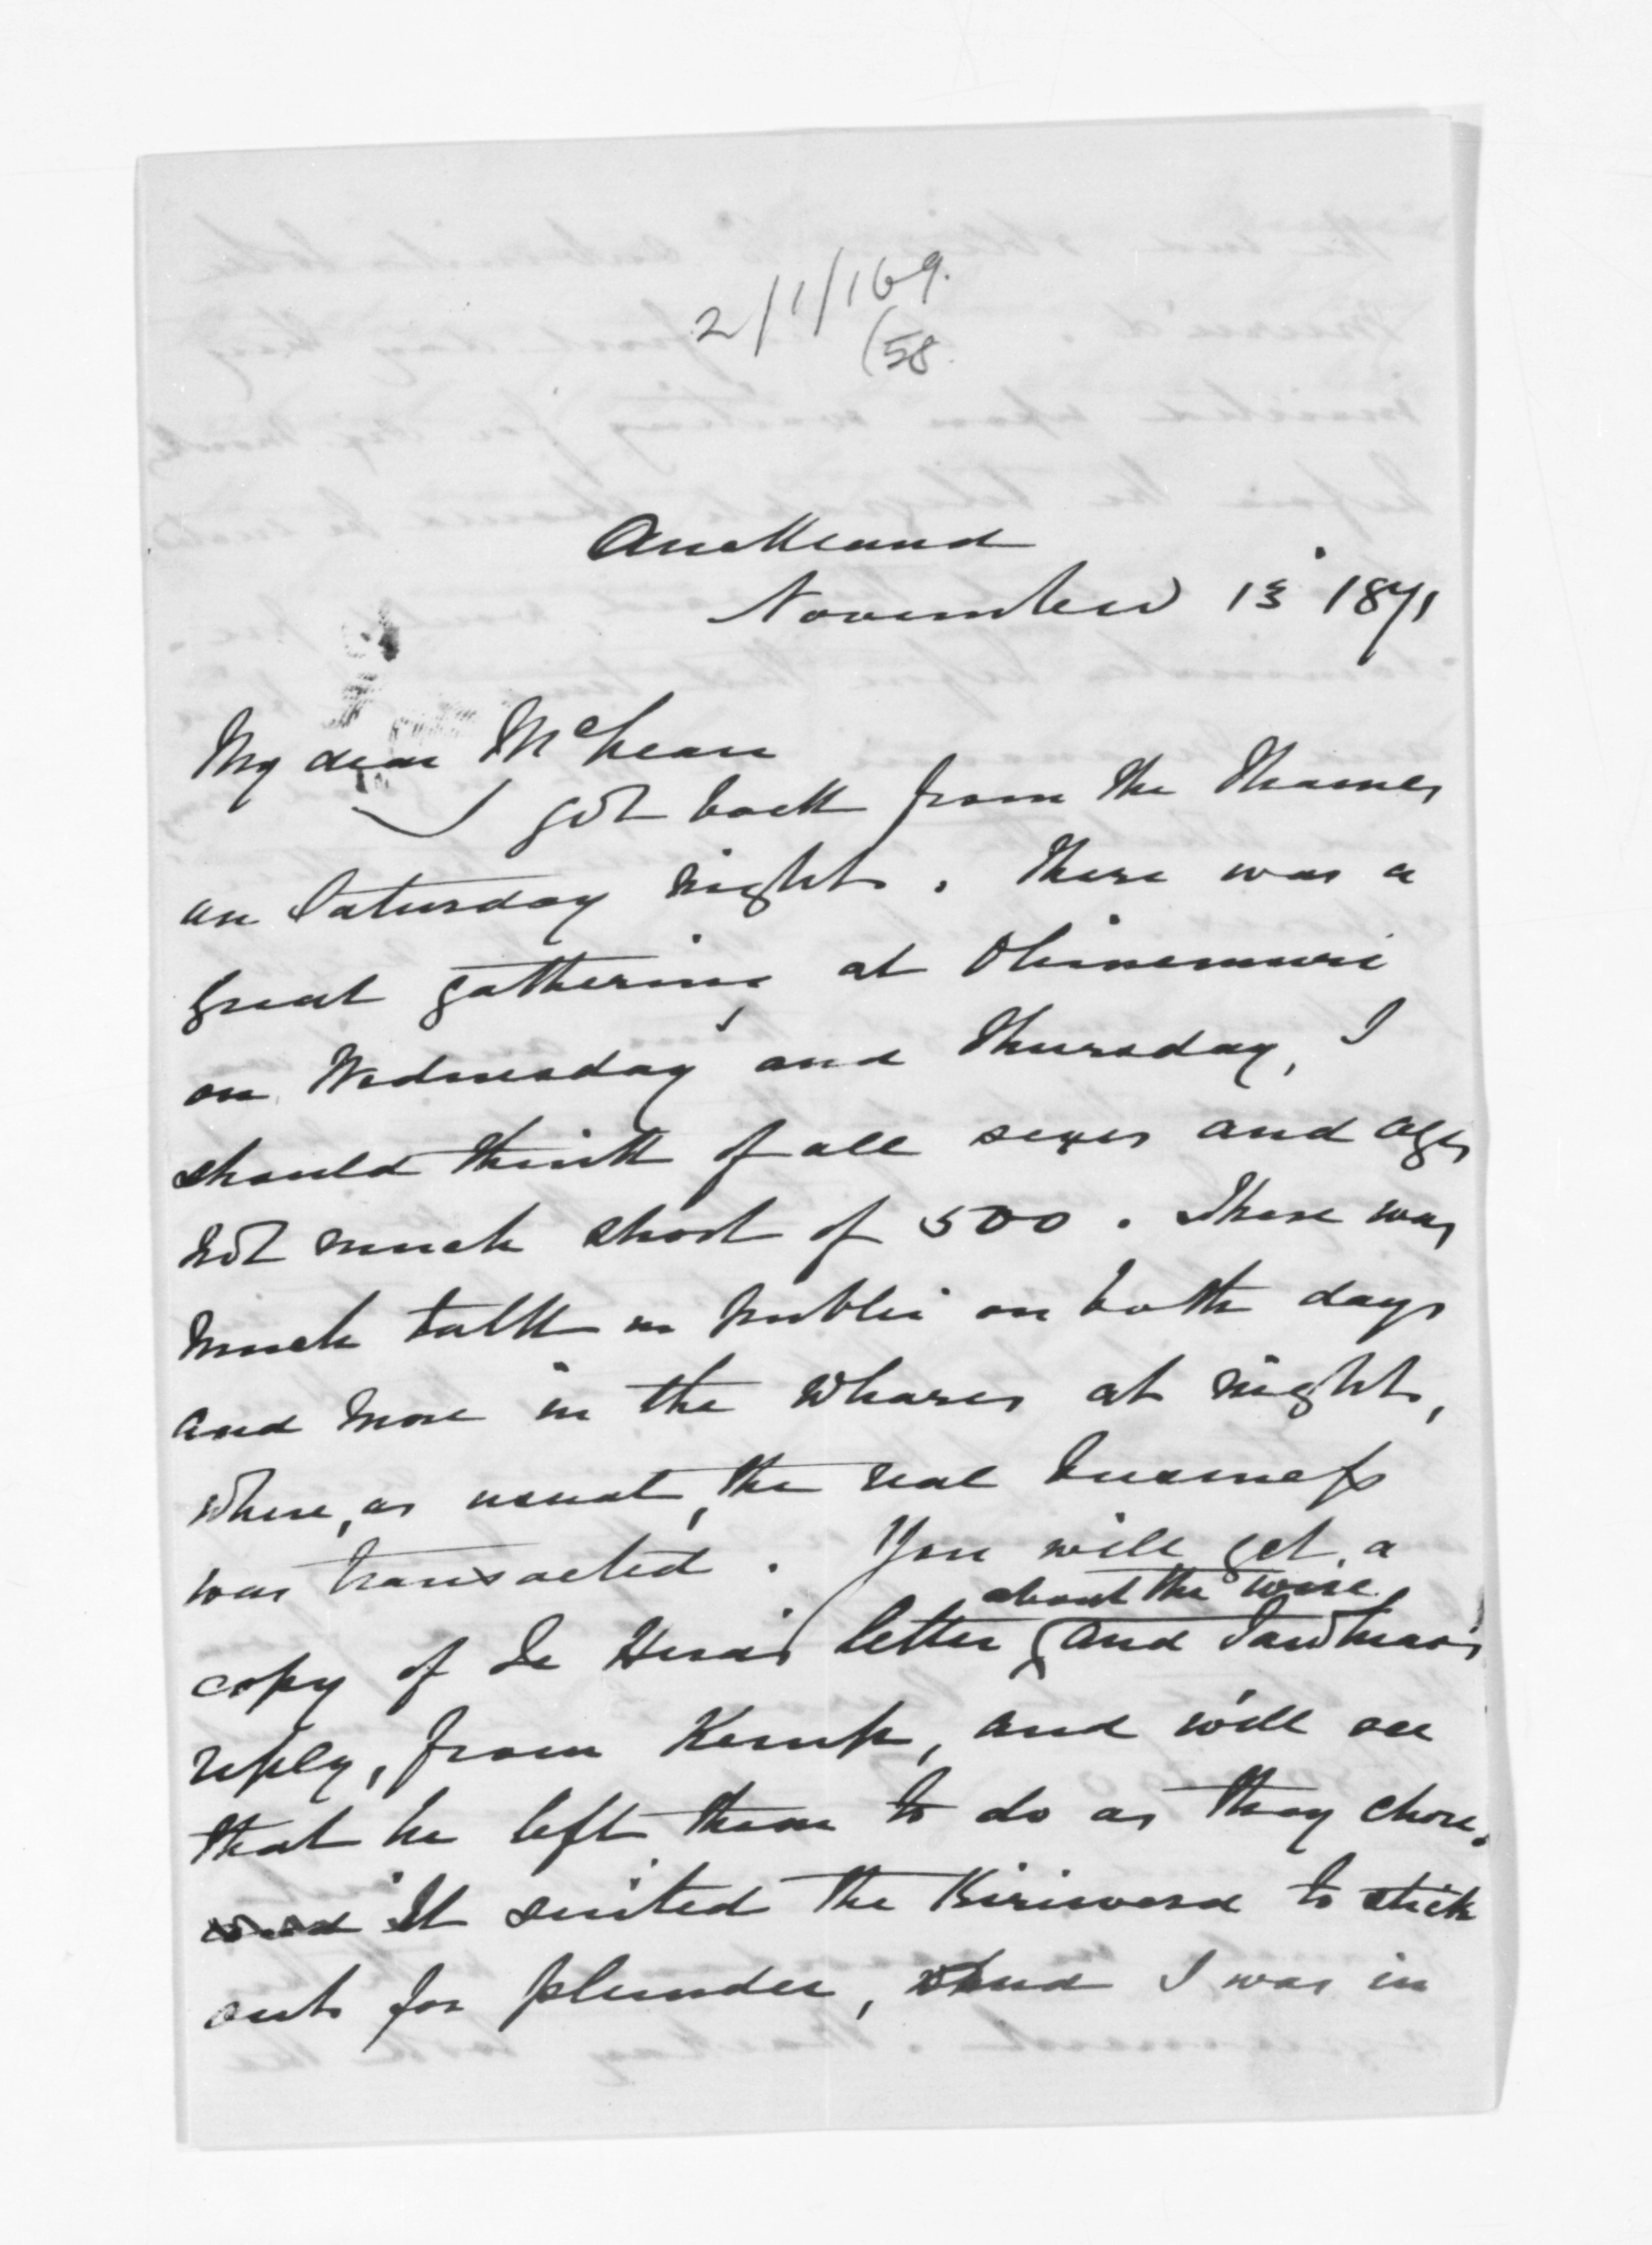 2/1/169.
(58.
Auckland
November 13 1871
My dear McLean
I got back from the Thames
on Saturday night. There was a
great gathering at Ohinemuri
on Wednesday and Thursday, I
should think of all sexes and ages
not much short of 500. There was
much talk in public on both days
and more in the whares at night,
where, as usual, the real business
was transacted. You will get a
about the wire
copy of Te Hira's letter and Tawhiao's
reply, from Kemp, and will see
that he left them to do as they chose.
and It suited the Kiriwera to stick
out for plunder, and I was in